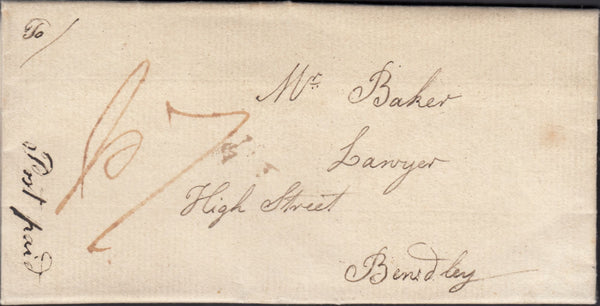 To/
Mr. Baker
Lawyer
High Street
Bewdley
Post paid